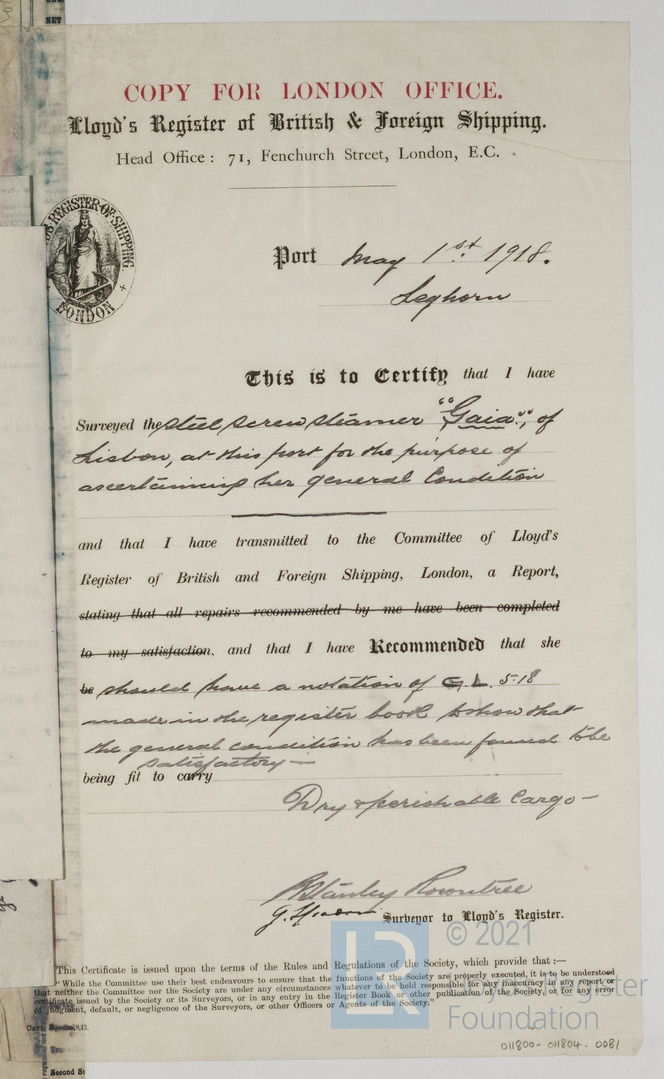 COPY FOR LONDON OFFICE.
Lloyd's Register of British & Foreign Shipping.
Head Office: 71, Fenchurch Street, London, E.C.
REGISTER OF SHIPPING
LONDON
Port May 1st. 1918.
Leghorn
This is to Certify that I have
Surveyed the steel screw steamer "Gaia", of
Lisbon, at this port for the purpose of
ascertaining her general Condition
and that I have transmitted to the Committee of Lloyd's
Register of British and Foreign Shipping, London, a Report,
stating that all repairs recommended by me have been completed
to my satisfaction, and that I have Recommended that she
be should have a notation of G.L. 5.18
made in the register book to show that
the general condition has been found to be
satisfactory—
being fit to carry
Dry & perishable Cargo—
Stanley Rowntree
Surveyor to Lloyd's Register.
This Certificate is issued upon the terms of the Rules and Regulations of the Society, which provide that:—
"While the Committee use their best endeavours to ensure that the functions of the Society are properly executed, it is to be understood
that neither the Committee nor the Society are under any circumstances whatever to be held responsible for any inaccuracy in any report or
certificate issued by the Society or its Surveyors, or in any entry in the Register Book or other publication of the Society, or for any error
of judgment, default, or negligence of the Surveyors, or other Officers or Agents of the Society."
© 2021
Lloyd's Register
Foundation
011800-011804-0081